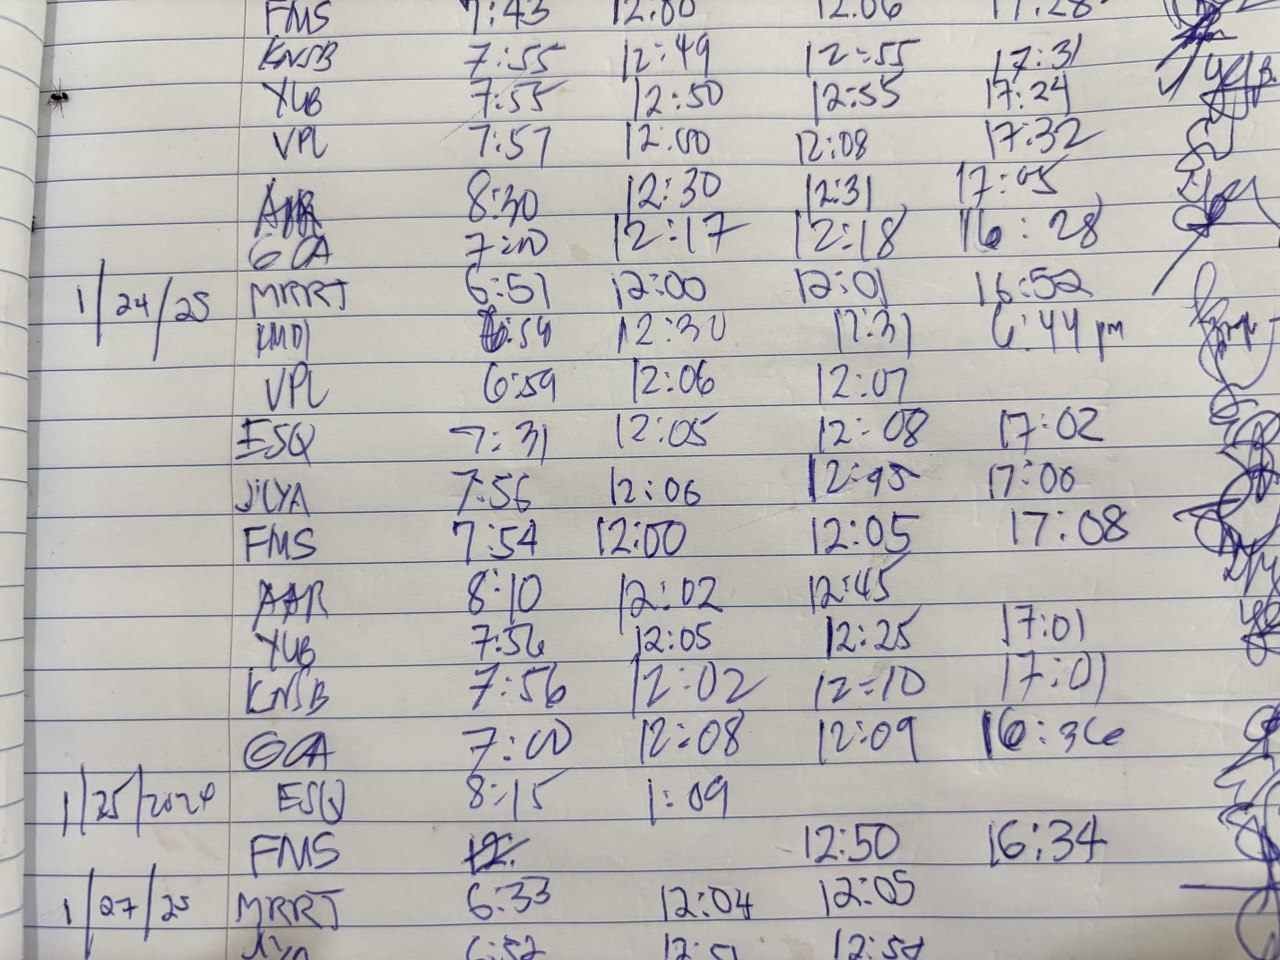 FMS 7:43 12:00 12:06 17:28
KNSB 7:55 12:49 12:55 17:31
YUB 7:55 12:50 12:55 17:24
VPL 7:57 12:00 12:08 17:32
8:30 12:30 12:31 17:05
GCA 7:00 12:17 12:18 16:28
1/24/25 MRRT 6:51 12:00 12:01 16:52
12:30 6:44 pm
VPL 6:59 12:06 12:07
ESQ 7:31 12:05 12:08 17:02
7:56 12:06 12:45 17:06
FMS 7:54 12:00 12:05 17:08
AAR 8:10 12:02 12:45
YUB 7:56 12:05 12:25 17:01
KNSB 7:56 12:02 12:10 17:01
GCA 7:00 12:08 12:09 16:36
1/25/2024 ESQ 8:15 1:09
FMS 12: 12:50 16:34
1/27/25 MRRT 6:33 12:04 12:05